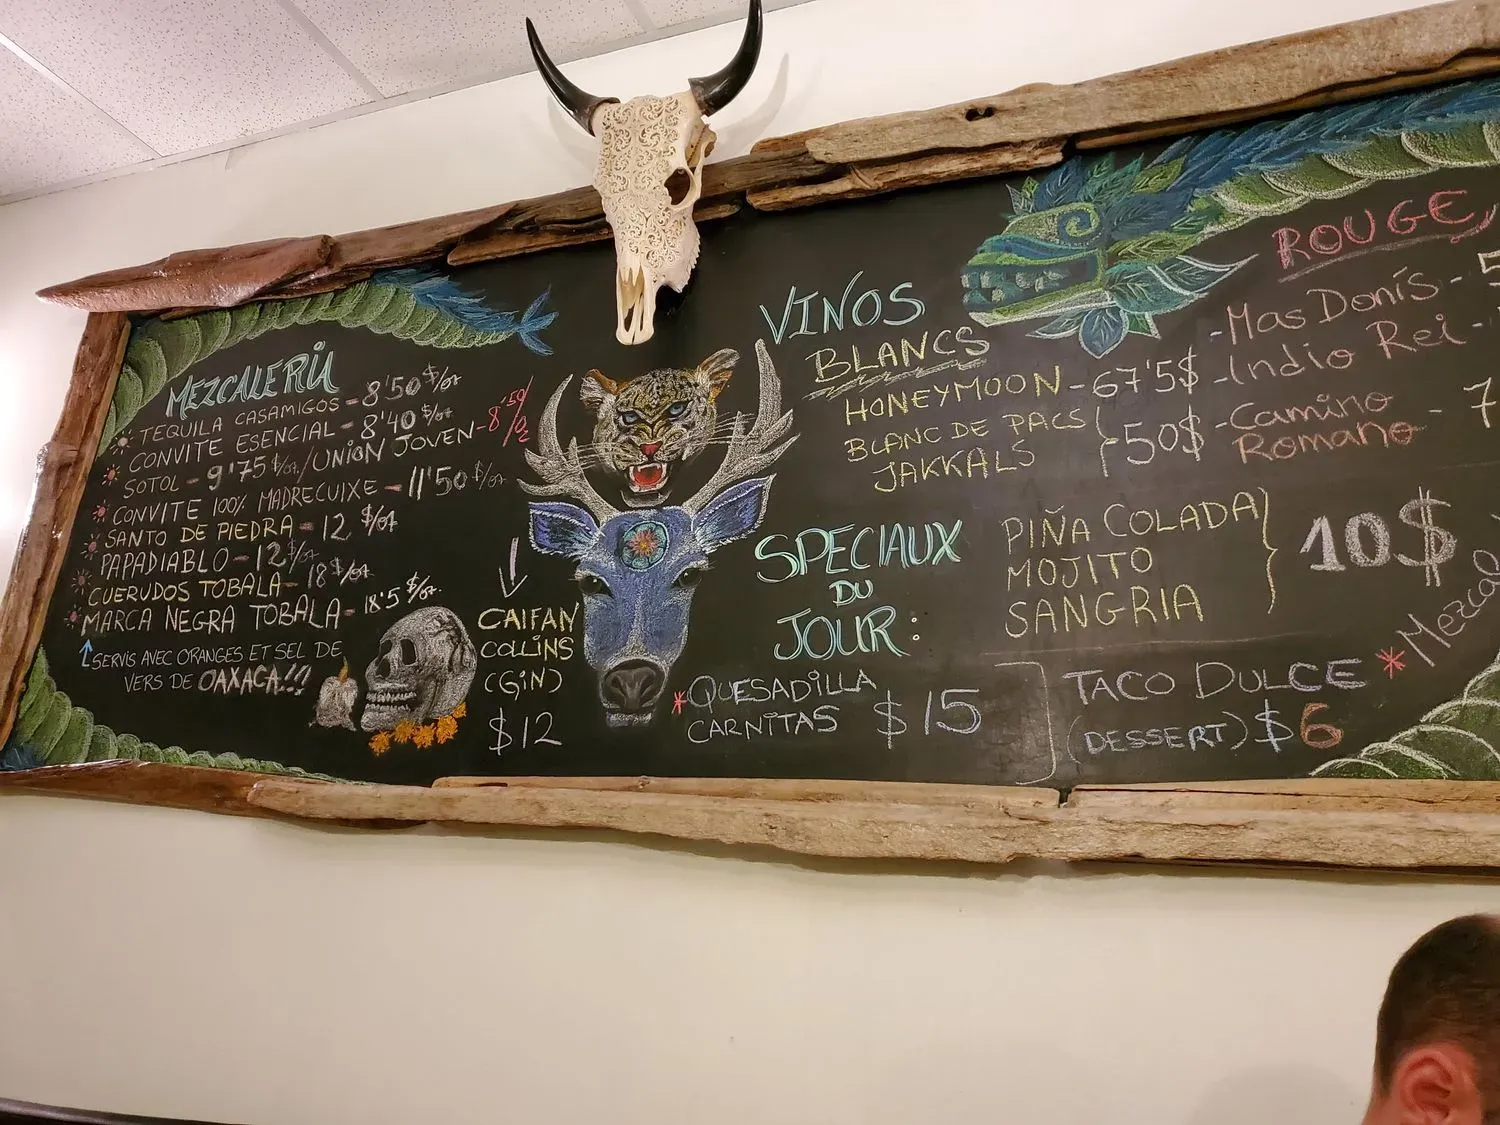 MEZCALERIA
TEQUILA CASAMIGOS - 8'50 $/oz
CONVITE ESENCIAL - 8'40 $/oz
SOTOL - 9'75 $/oz. / UNION JOVEN - 8'50 $/oz
CONVITE 100% MADRECUIXE - 11'50 $/oz
SANTO DE PIEDRA - 12 $/oz
PAPADIABLO - 12 $/oz
CUERUDOS TOBALA - 18 $/oz
MARCA NEGRA TOBALA - 18'5 $/oz.
SERVIS AVEC ORANGES ET SEL DE
VERS DE OAXACA!!!
CAIFAN
COLLINS
(GIN)
$12
VINOS
BLANCS
HONEYMOON - 67'5$
BLANC DE PACS
JAKKALS
50$
ROUGE
- Mas Donís -
- Indio Rei -
- Camino
Romano -
SPECIAUX
DU
JOUR:
PIÑA COLADA
MOJITO
SANGRIA
10$
* QUESADILLA
CARNITAS $15
TACO DULCE
(DESSERT) $6
* Mezcal